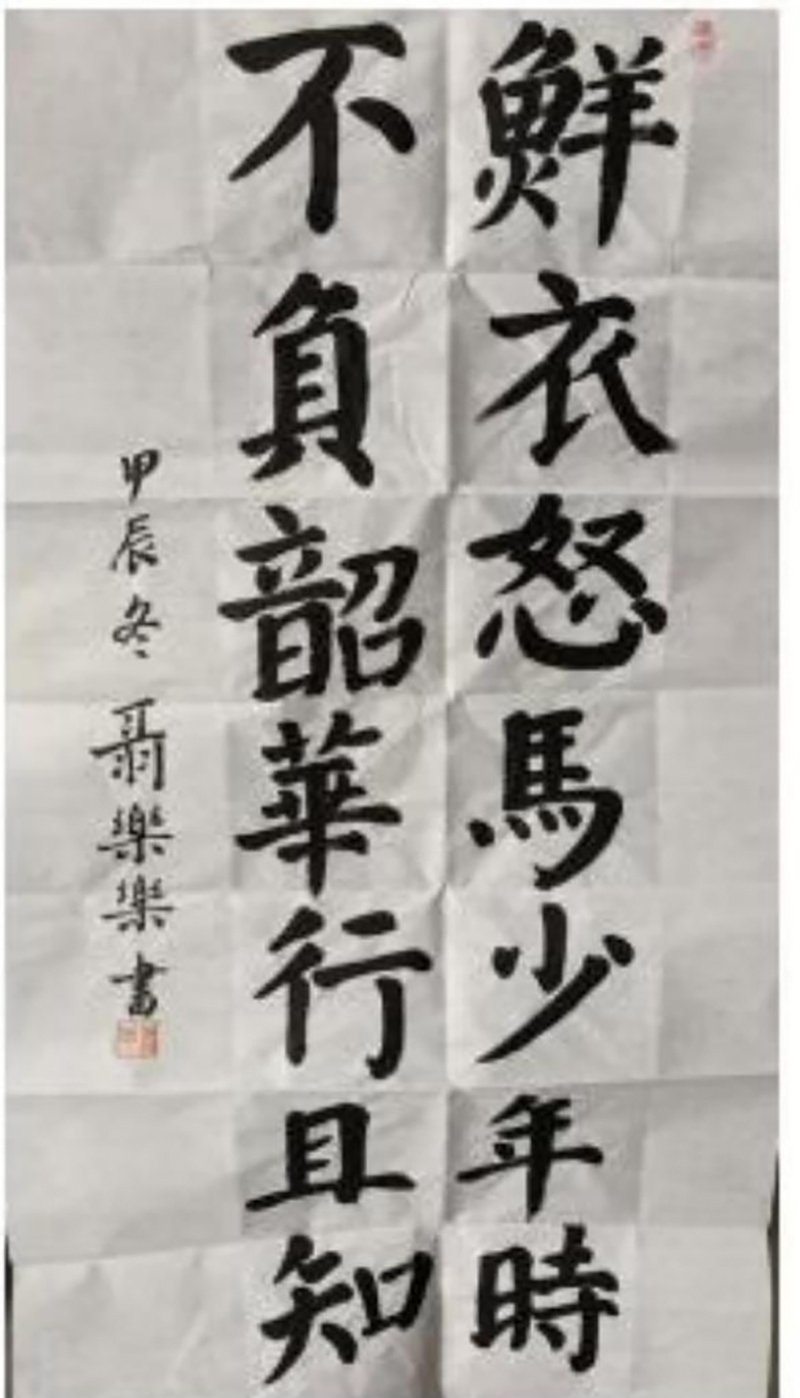 鮮衣怒馬少年時
不負韶華行且知
甲辰冬 聶樂樂書